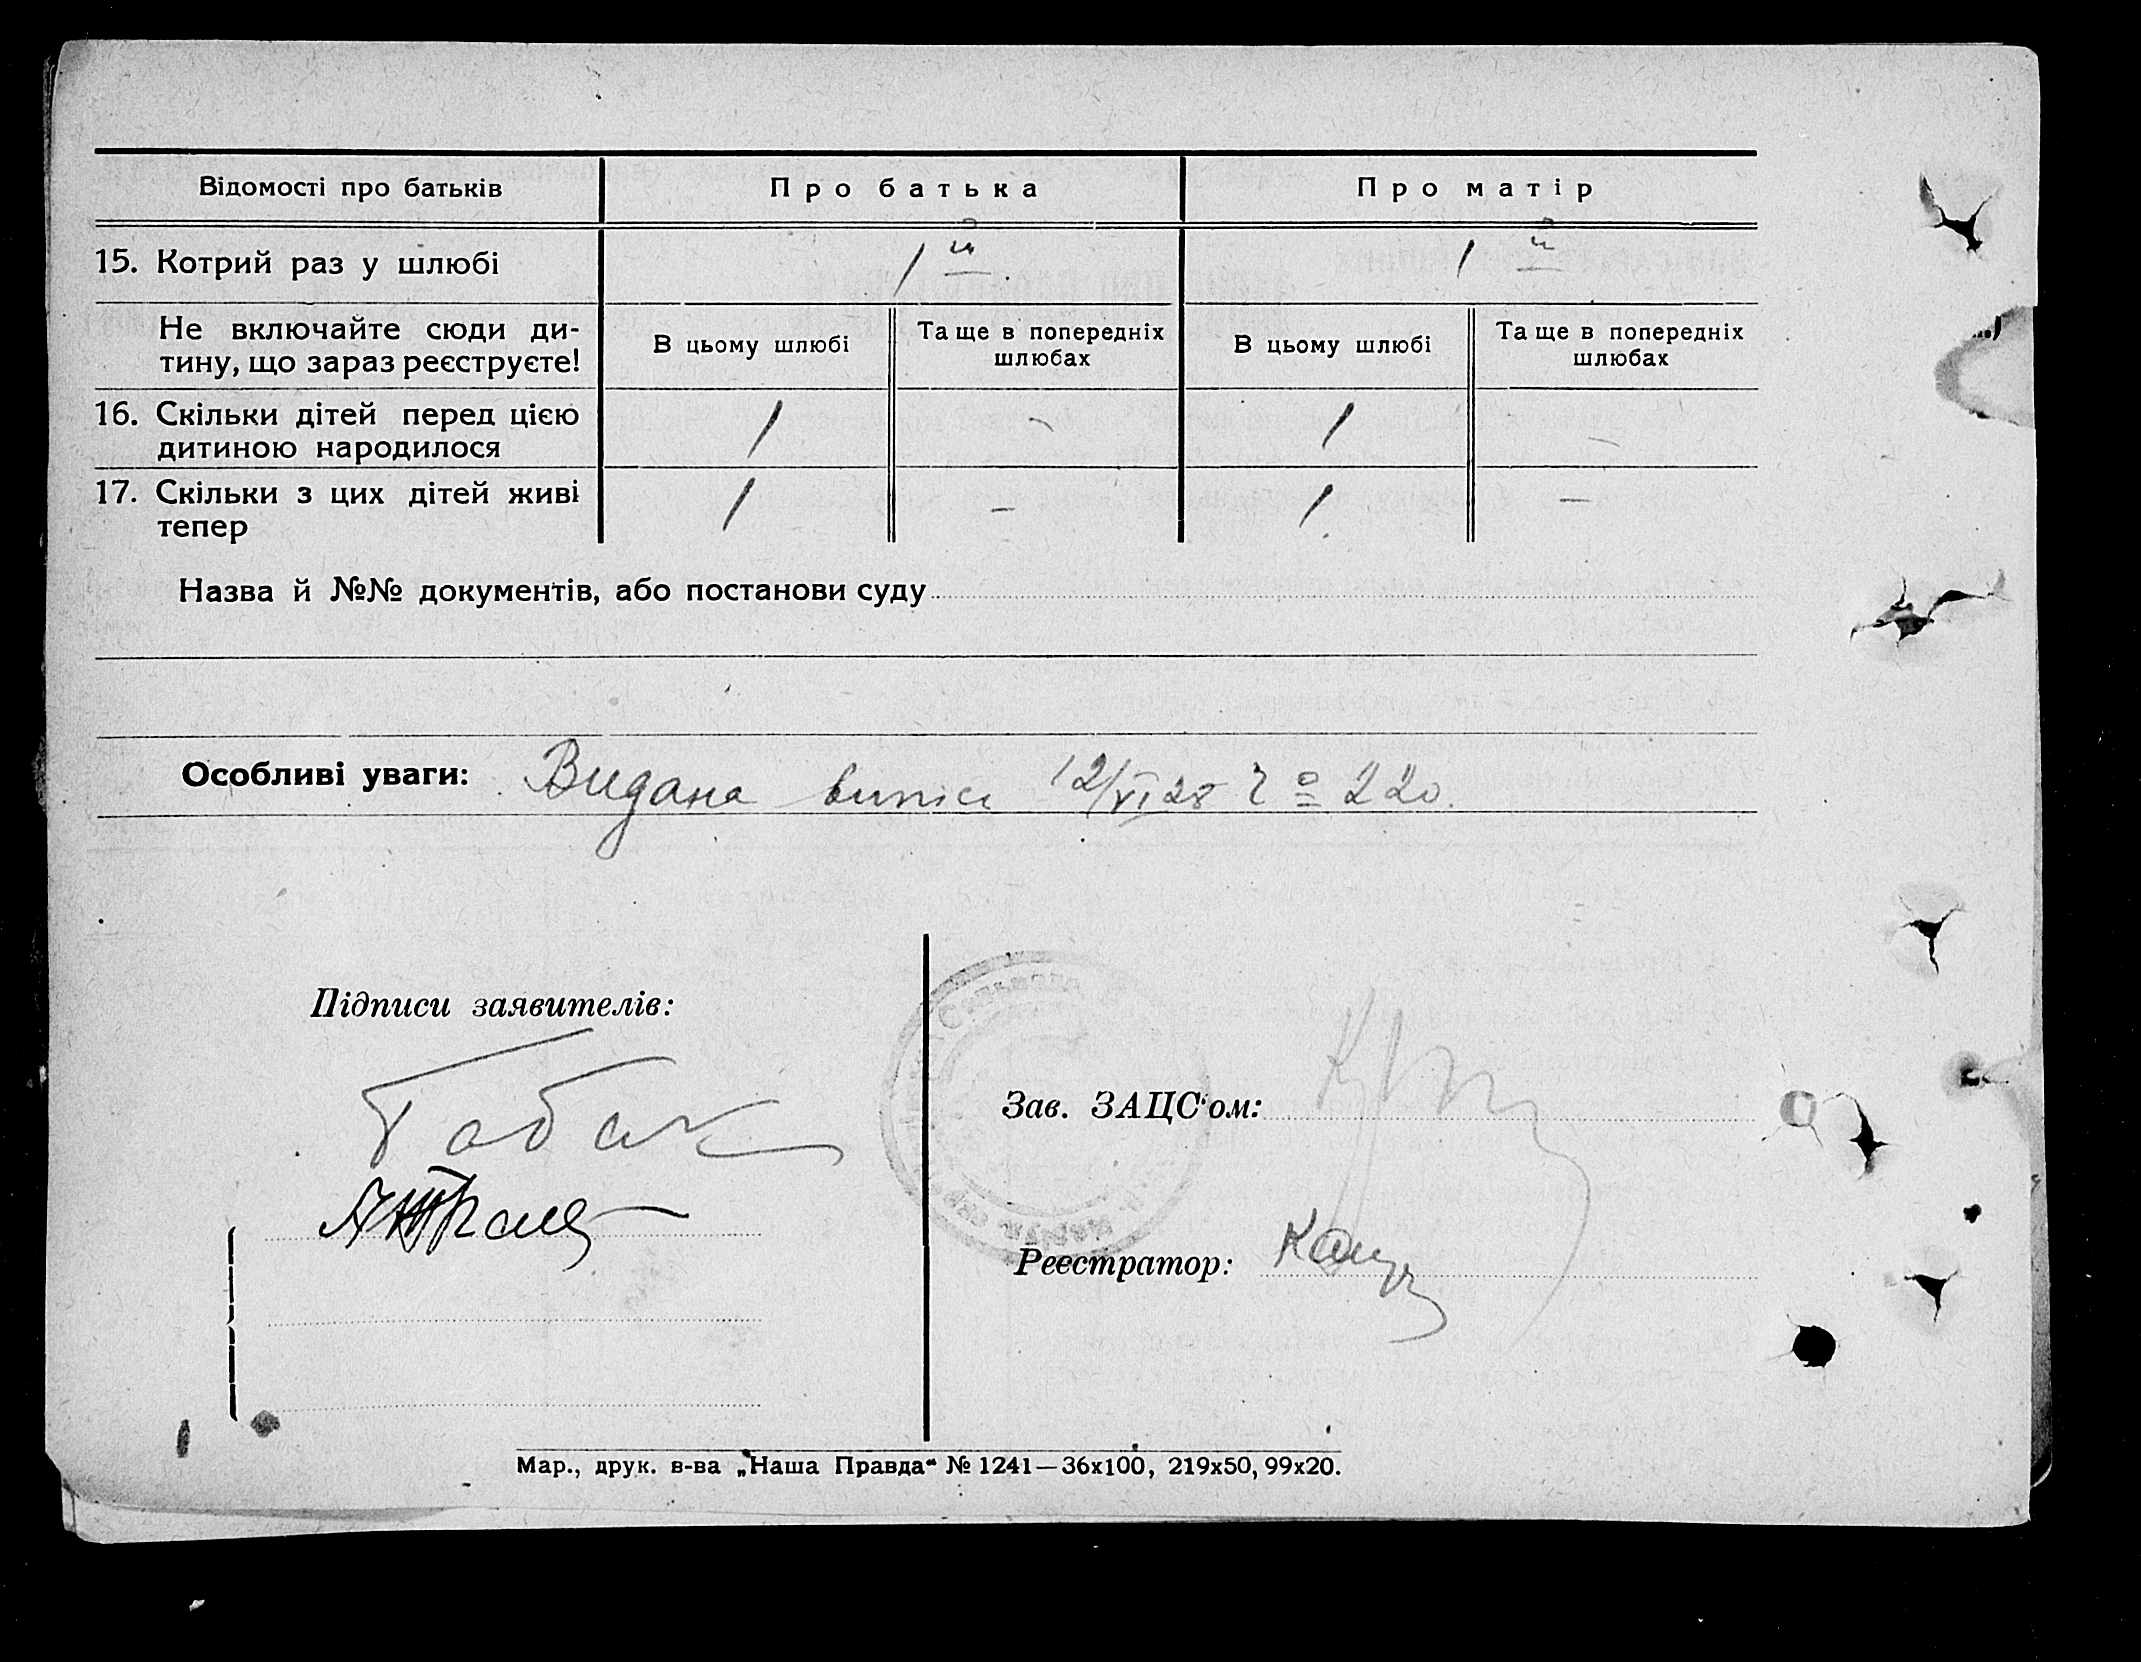 Відомості про батьків Про батька Про матір
15. Котрий раз у шлюбі 1й 1й
Не включайте сюди ди-
тину, що зараз реєструєте!
В цьому шлюбі
Та ще в попередніх
шлюбах
В цьому шлюбі
Та ще в попередніх
шлюбах
16. Скільки дітей перед цією
дитиною народилося
1 - 1 -
17. Скільки з цих дітей живі
тепер
1 - 1 -
Назва й №№ документів, або постанови суду
Особливі уваги: Видана 12/VI 28 220.
Підписи заявителів:
Табак
Зав. ЗАЦС'ом:
Реєстратор:
Мар., друк. в-ва „Наша Правда“ № 1241—36х100, 219х50, 99х20.